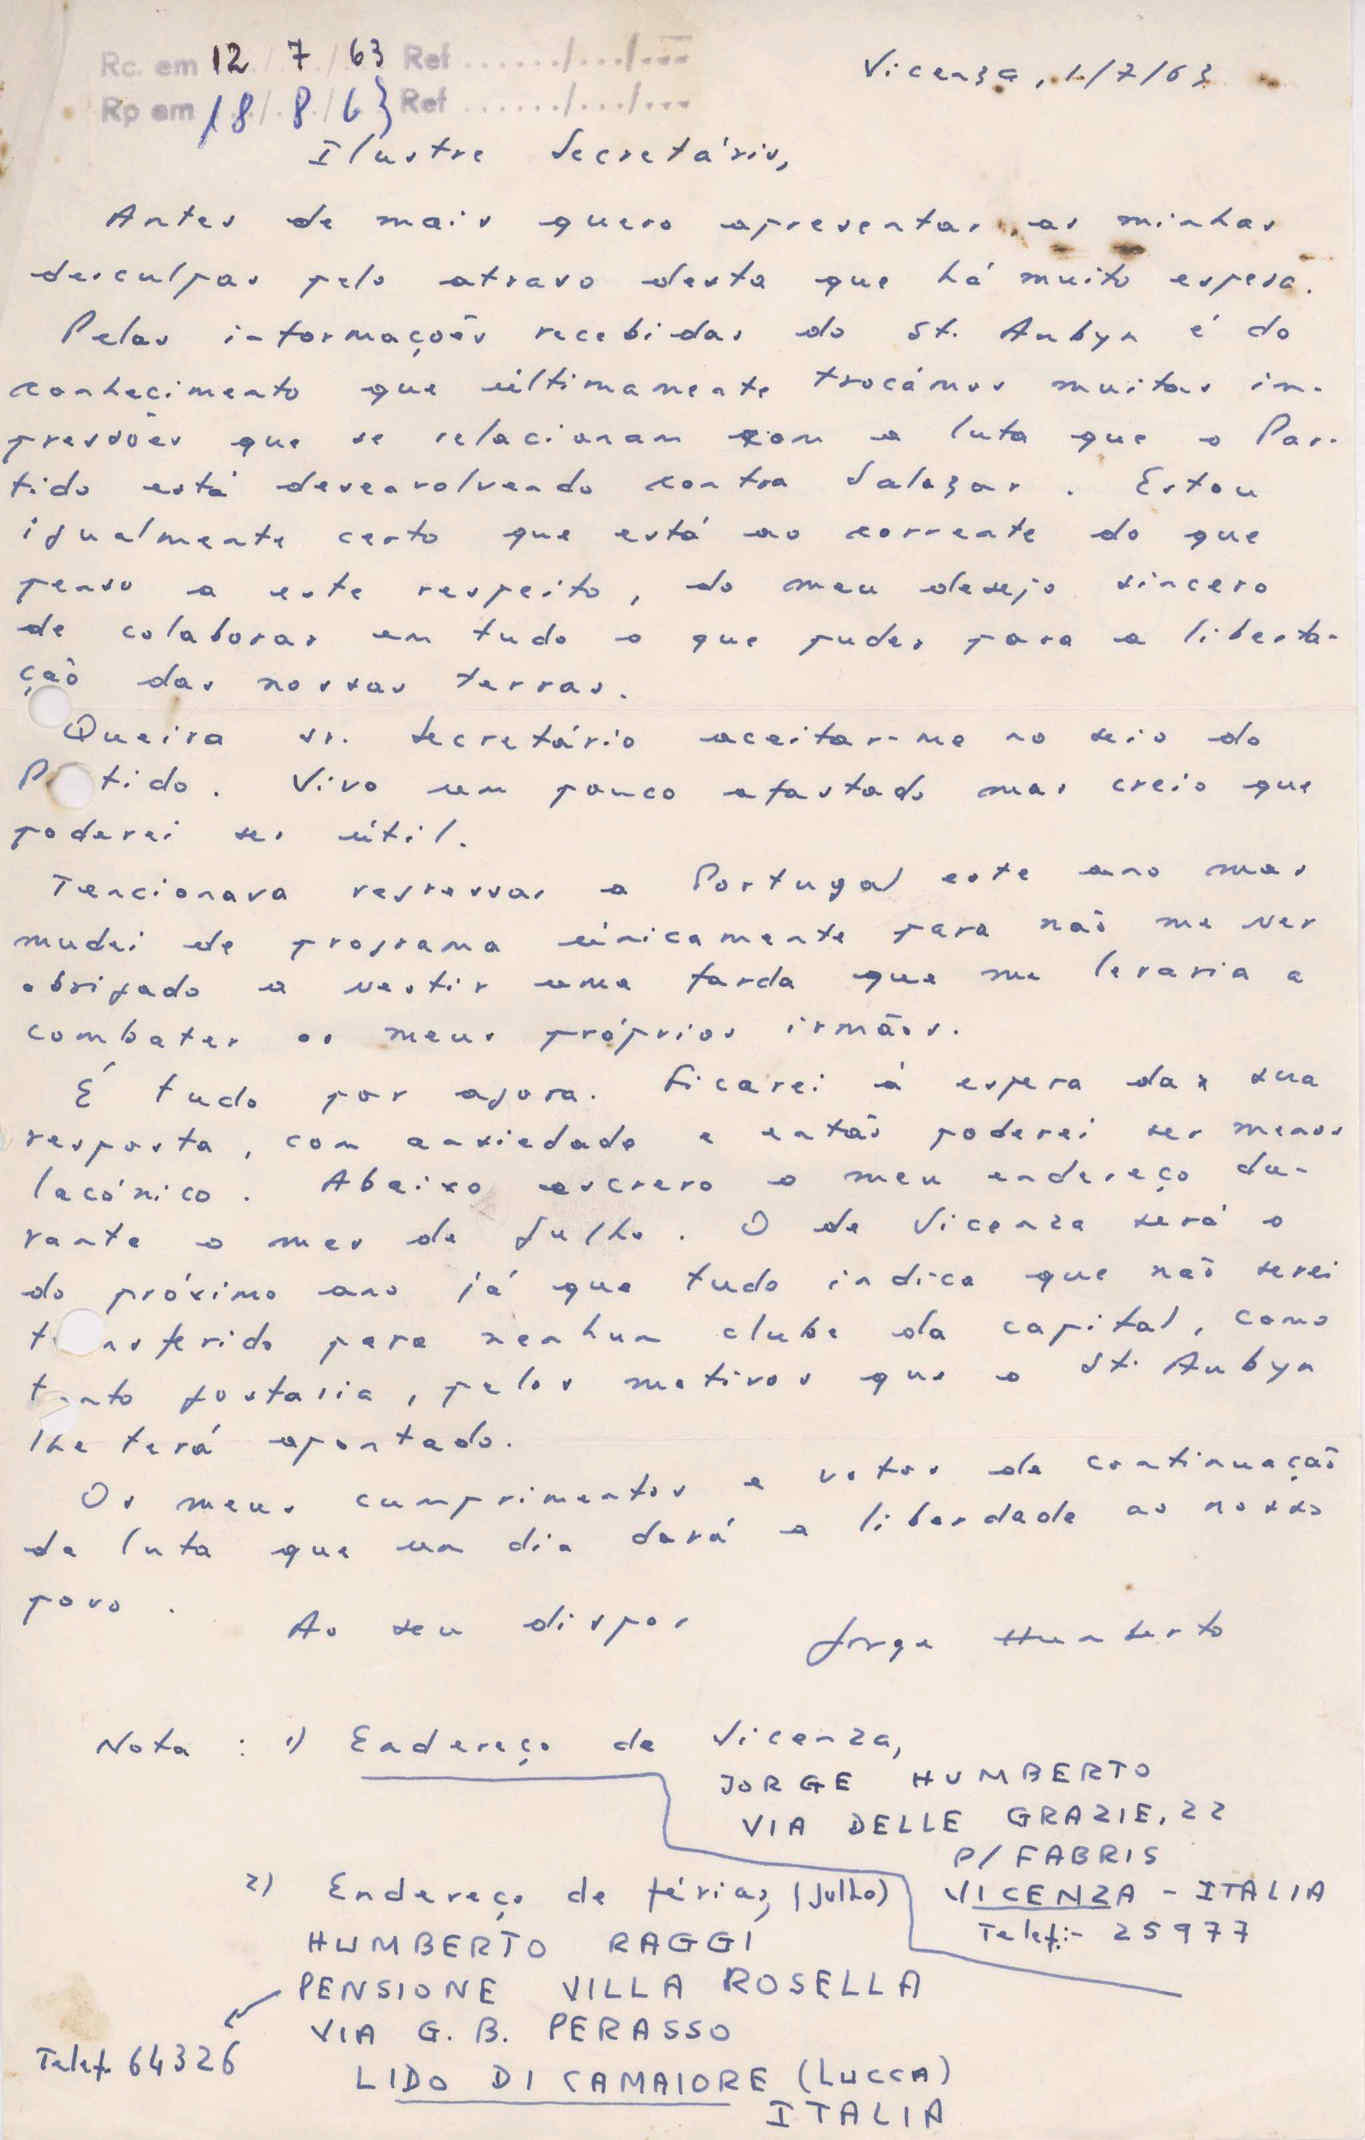 Rc. em 12/7/63 Ref ....../.../...
Rp em 18/8/63 Ref ....../.../...
Vicenza, 1/7/63
Ilustre Secretário,
Antes de mais quero apresentar as minhas
desculpas pelo atraso desta que há muito espera.
Pelas informações recebidas do St. Aubyn é do
conhecimento que últimamente trocámos muitas im-
pressões que se relacionam com a luta que o Par-
tido está desenvolvendo contra Salazar. Estou
igualmente certo que está ao corrente do que
penso a este respeito, do meu desejo sincero
de colaborar em tudo o que puder para a liberta-
ção das nossas terras.
Queira sr. secretário aceitar-me no seio do
P tido. Vivo um pouco afastado mas creio que
poderei ser útil.
Tencionava regressar a Portugal este ano mas
mudei de programa únicamente para não me ver
obrigado a vestir uma farda que me levaria a
combater os meus próprios irmãos.
É tudo por agora. Ficarei à espera da sua
resposta, com ansiedade e então poderei ser menos
lacónico. Abaixo escrevo o meu endereço du-
rante o mes de Julho. O de Vicenza será o
do próximo ano já que tudo indica que não serei
t nsferido para nenhum clube da capital, como
tanto gostaria, pelos motivos que o St. Aubyn
lhe terá apontado.
Os meus cumprimentos e votos de continuação
da luta que um dia dará a liberdade ao nosso
povo.
Ao seu dispor
Jorge Humberto
Nota : 1) Endereço de Vicenza,
JORGE HUMBERTO
VIA DELLE GRAZIE, 22
P/ FABRIS
VICENZA - ITALIA
Telef:- 25977
2) Endereço de férias, (Julho)
HUMBERTO RAGGI
PENSIONE VILLA ROSELLA
VIA G. B. PERASSO
Telef. 64326
LIDO DI CAMAIORE (LUCCA)
ITALIA